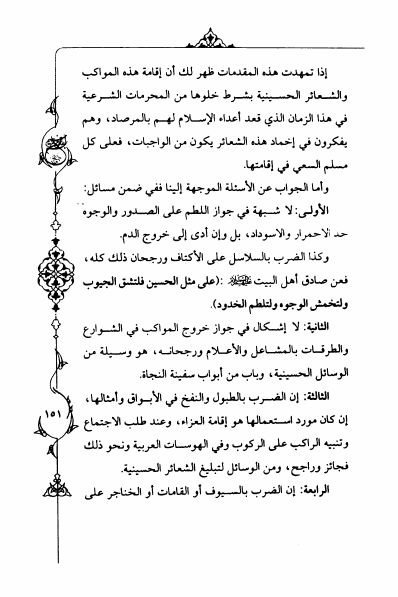 إذا تمهدت هذه المقدمات ظهر لك أن إقامة هذه المواكب
والشعائر الحسينية بشرط خلوها من المحرمات الشرعية
في هذا الزمان الذي قعد أعداء الإسلام لهم بالمرصاد، وهم
يفكرون في إخماد هذه الشعائر يكون من الواجبات، فعلى كل
مسلم السعي في إقامتها.
وأما الجواب عن الأسئلة الموجهة إلينا ففي ضمن مسائل:
الأولى: لا شبهة في جواز اللطم على الصدور والوجوه
حد الاحمرار والاسوداد، بل وإن أدى إلى خروج الدم.
وكذا الضرب بالسلاسل على الأكتاف ورجحان ذلك كله،
فعن صادق أهل البيت :(على مثل الحسين فلتشق الجيوب
ولتخمش الوجوه ولتلطم الخدود).
الثانية: لا إشكال في جواز خروج المواكب في الشوارع
والطرقات بالمشاعل والأعلام ورجحانه، هو وسيلة من
الوسائل الحسينية، وباب من أبواب سفينة النجاة.
الثالثة: إن الضرب بالطبول والنفخ في الأبواق وأمثالها،
إن كان مورد استعمالها هو إقامة العزاء، وعند طلب الاجتماع
وتنبيه الراكب على الركوب وفي الهوسات العربية ونحو ذلك
فجائز وراجح، ومن الوسائل لتبليغ الشعائر الحسينية.
الرابعة: إن الضرب بالسيوف أو القامات أو الخناجر على
١٥١